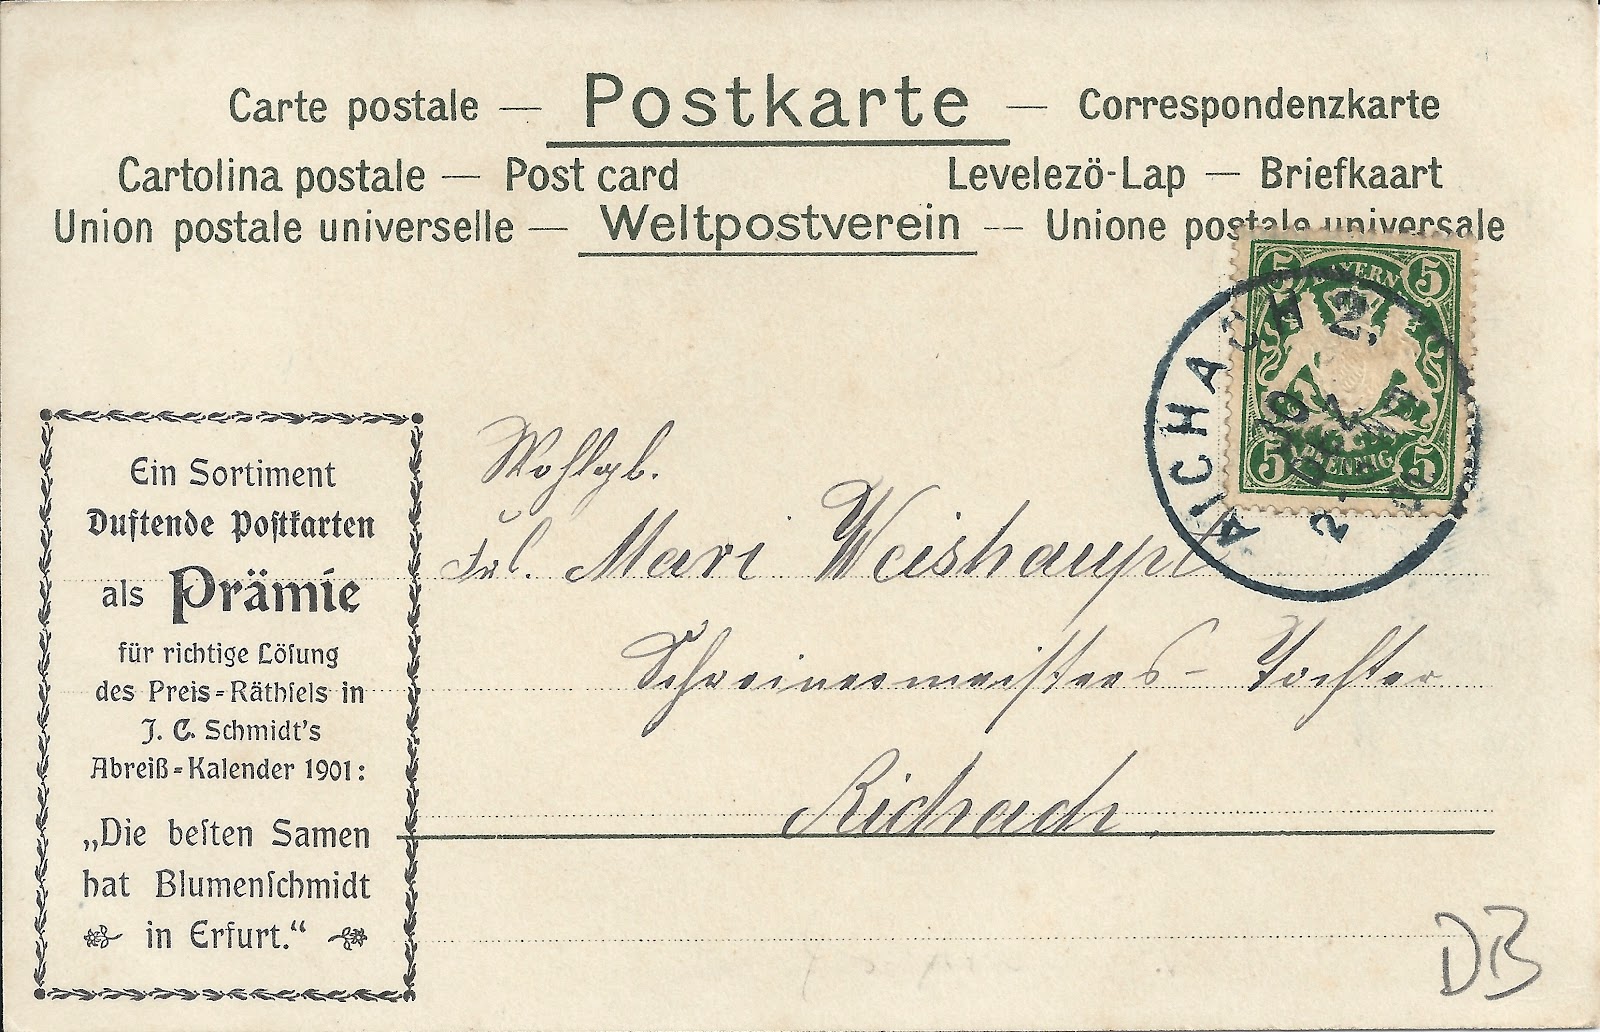 Carte postale — Postkarte — Correspondenzkarte
Cartolina postale — Post card Levelező-Lap — Briefkaart
Union postale universelle — Weltpostverein -- Unione postale universale
5 BAYERN 5
5 PFENNIG 5
AICHACH 2.
Ein Sortiment
Duftende Poſtkarten
als Prämie
für richtige Löſung
des Preis-Räthſels in
J. C. Schmidt's
Abreiß-Kalender 1901:
„Die beſten Samen
hat Blumenſchmidt
in Erfurt."
Wohlgb.
Frl. Mari Weishaupt
Schreinermeisters-Tochter
Aichach.
DB